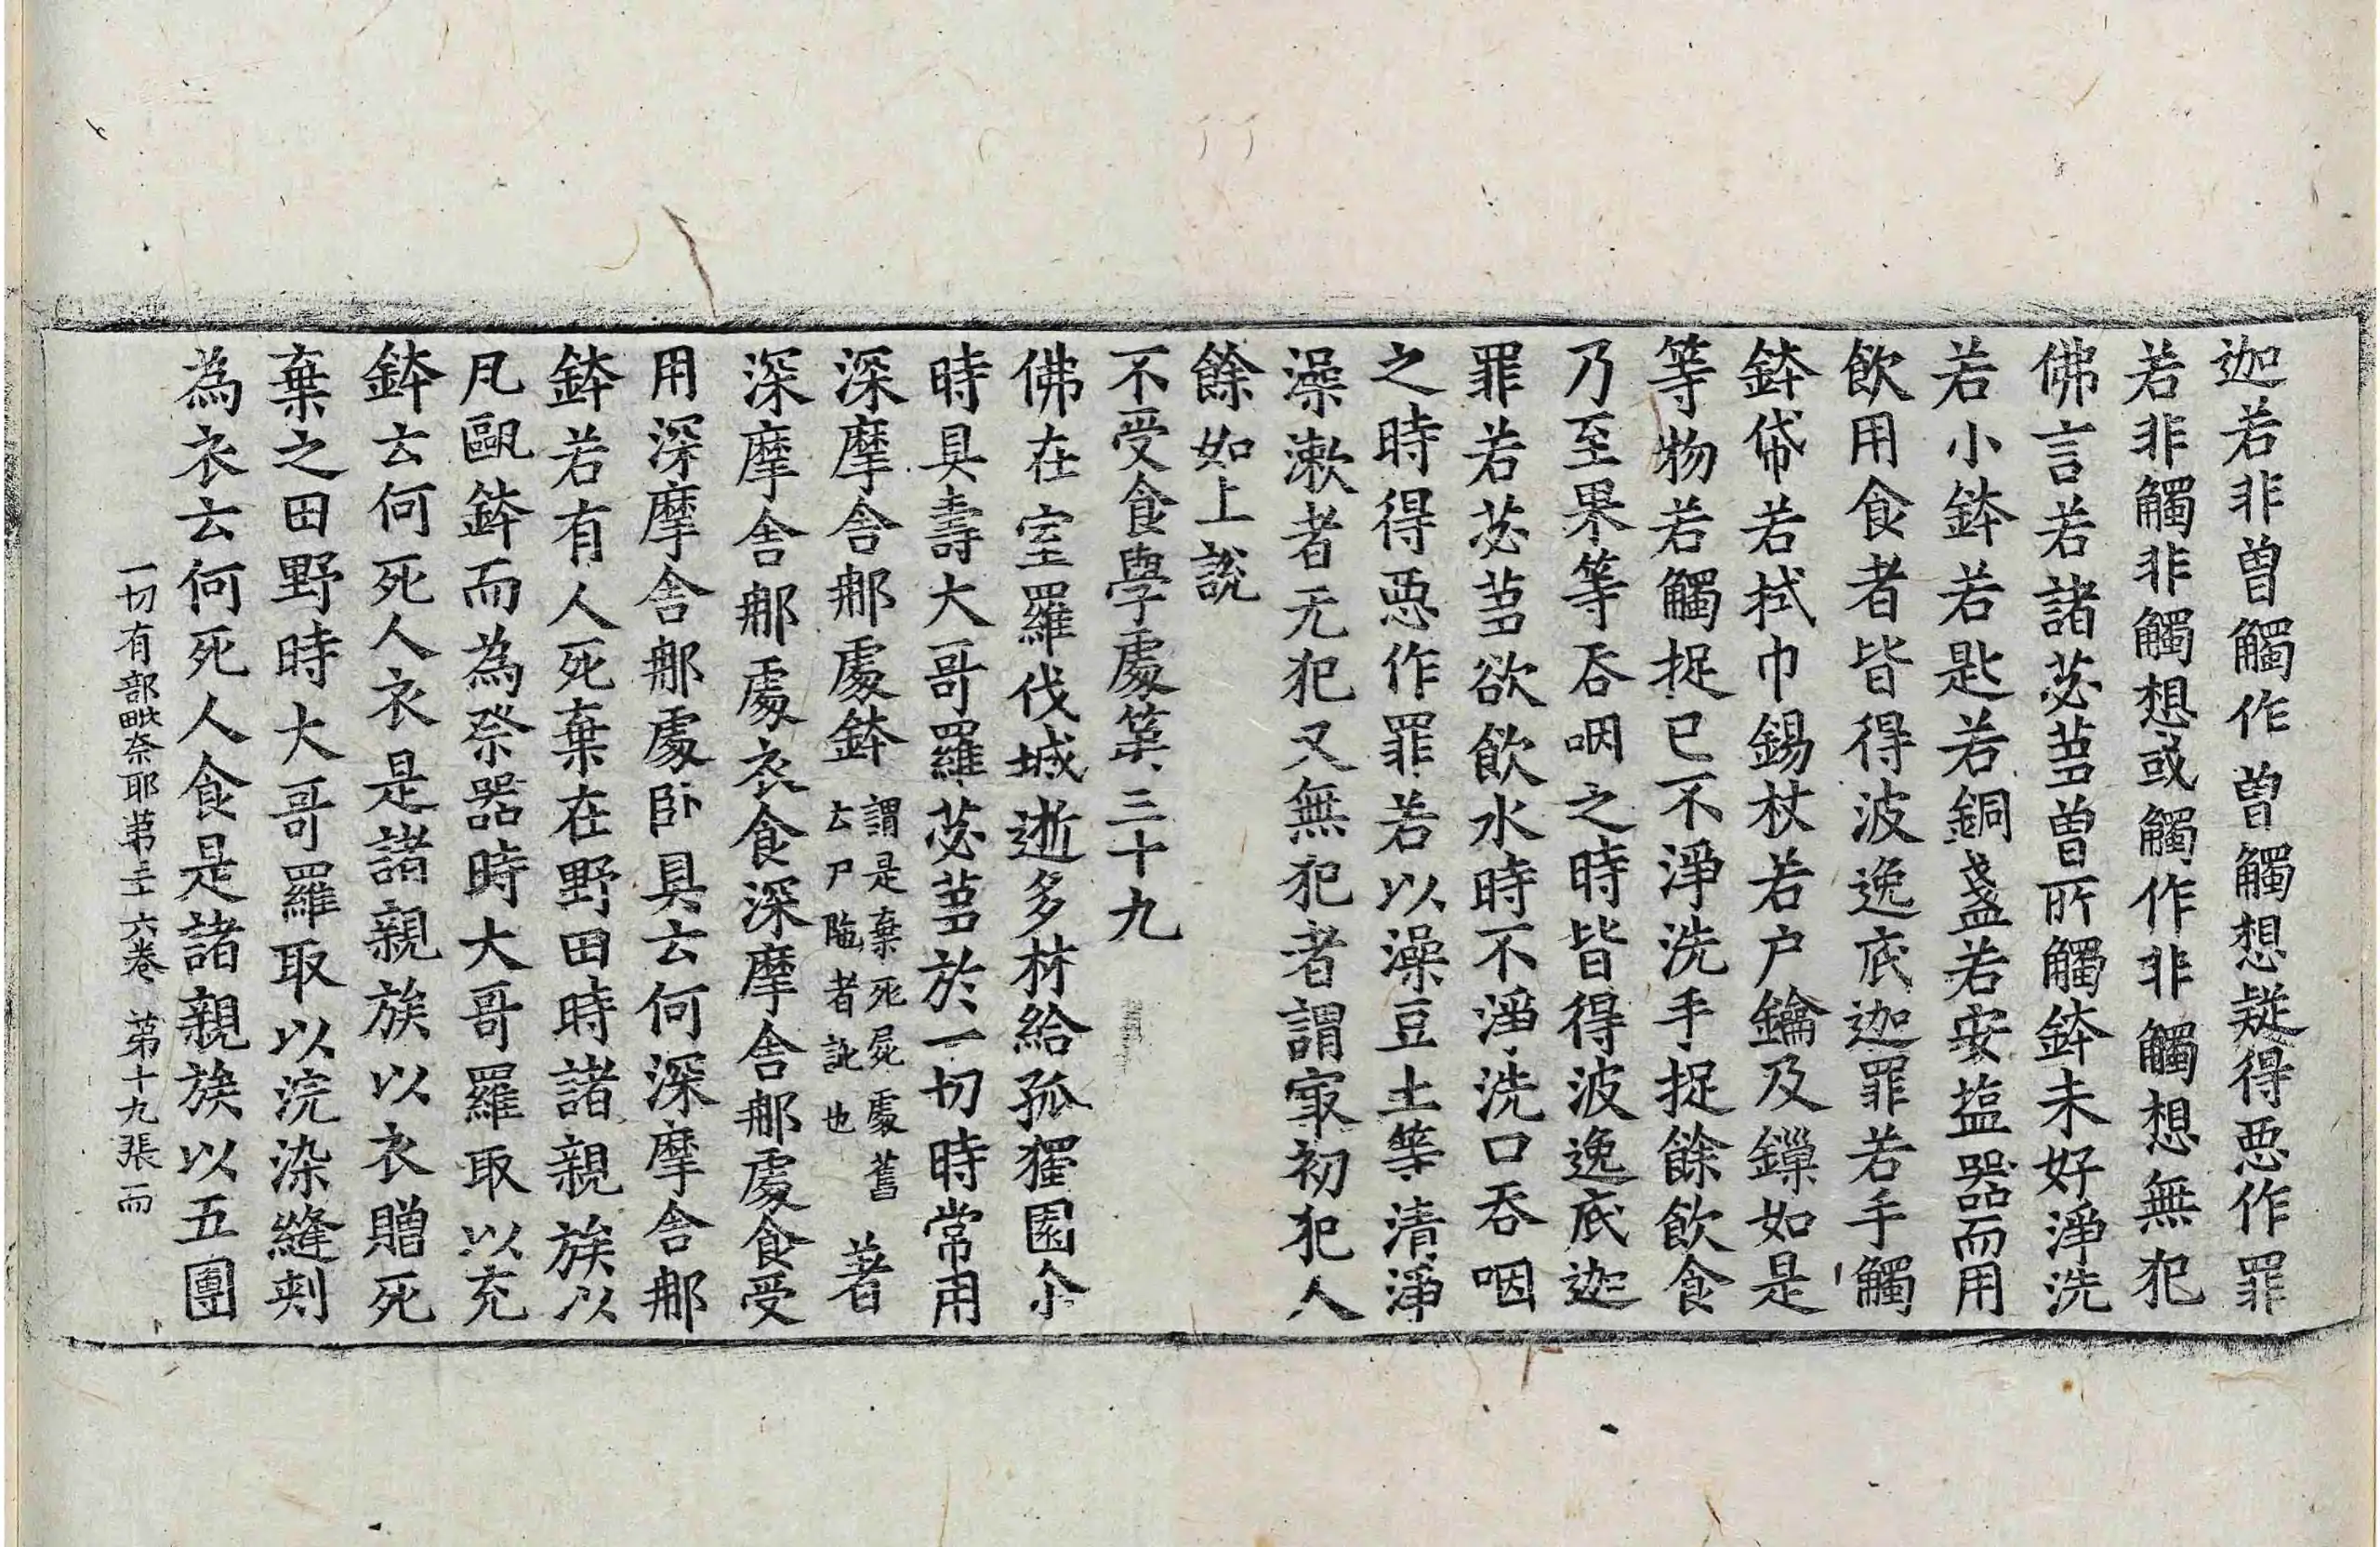 迦若非曾觸作曾觸想疑得惡作罪
若非觸非觸想或觸作非觸想無犯
佛言若諸苾芻曾所觸鉢未好淨洗
若小鉢若匙若銅盞若安塩器而用
飲用食者皆得波逸底迦罪若手觸
鉢帒若拭巾錫杖若户鑰及鏁如是
等物若觸捉已不淨洗手捉餘飲食
乃至果等吞咽之時皆得波逸底迦
罪若苾芻欲飲水時不淨洗口吞咽
之時得惡作罪若以澡豆土等清淨
澡漱者无犯又無犯者謂㝡初犯人
餘如上說
不受食學處第三十九
佛在室羅伐城逝多林給孤獨園尒
時具壽大哥羅苾芻於一切時常用
深摩舍那處鉢謂是棄死屍處舊云尸陁者訛也著
深摩舍那處衣食深摩舍那處食受
用深摩舍那處卧具云何深摩舍那
鉢若有人死棄在野田時諸親族以
凡甌鉢而為祭器時大哥羅取以充
鉢云何死人衣是諸親族以衣贈死
棄之田野時大哥羅取以浣染縫刾
為衣云何死人食是諸親族以五團
一切有部毗奈耶第三十六卷 第十九張 而